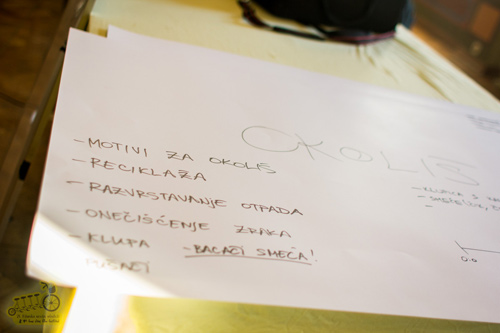 OKOLIŠ
- MOTIVI ZA OKOLIŠ
- RECIKLAŽA
- RAZVRSTAVANJE OTPADA
- ONEČIŠĆENJE ZRAKA
- KLUPA - BACAČI SMEĆA!
PUŠAČI